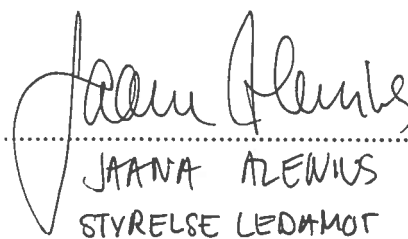 Jaana Alenius
JAANA ALENIUS
STYRELSE LEDAMOT